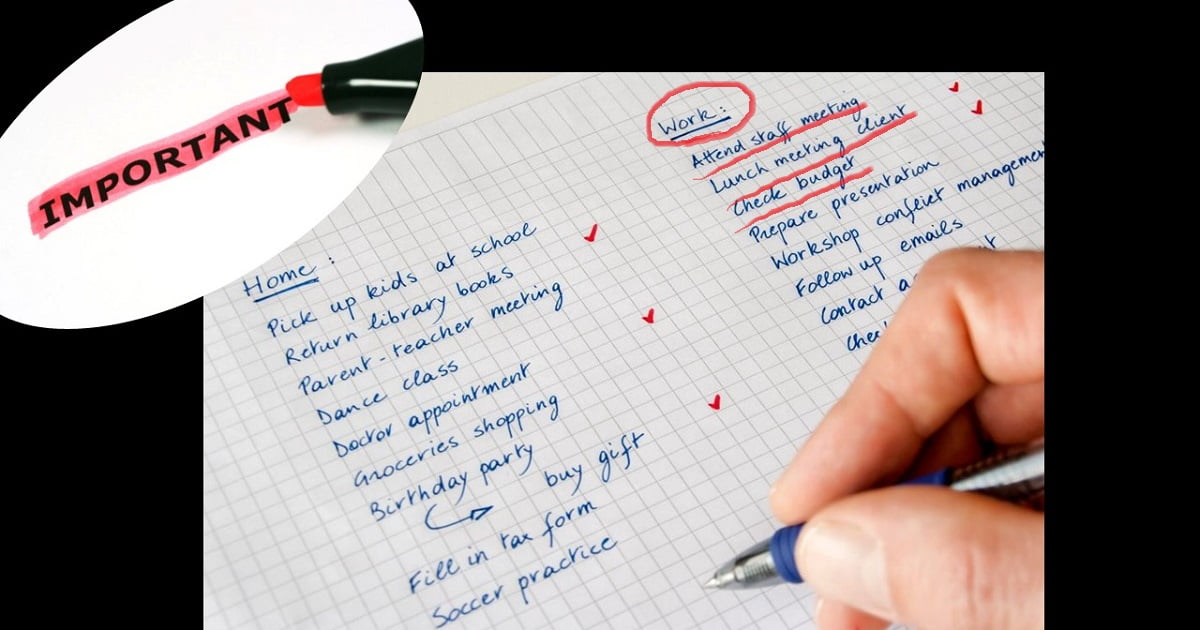 IMPORTANT
Home:
Pick up kids at school
Return library books
Parent-teacher meeting
Dance class
Doctor appointment
Groceries shopping
Birthday party
buy gift
Fill in tax form
Soccer practice
Work:
Attend staff meeting
Lunch meeting client
Check budget
Prepare presentation
Workshop conflict management
Follow up emails
Contact